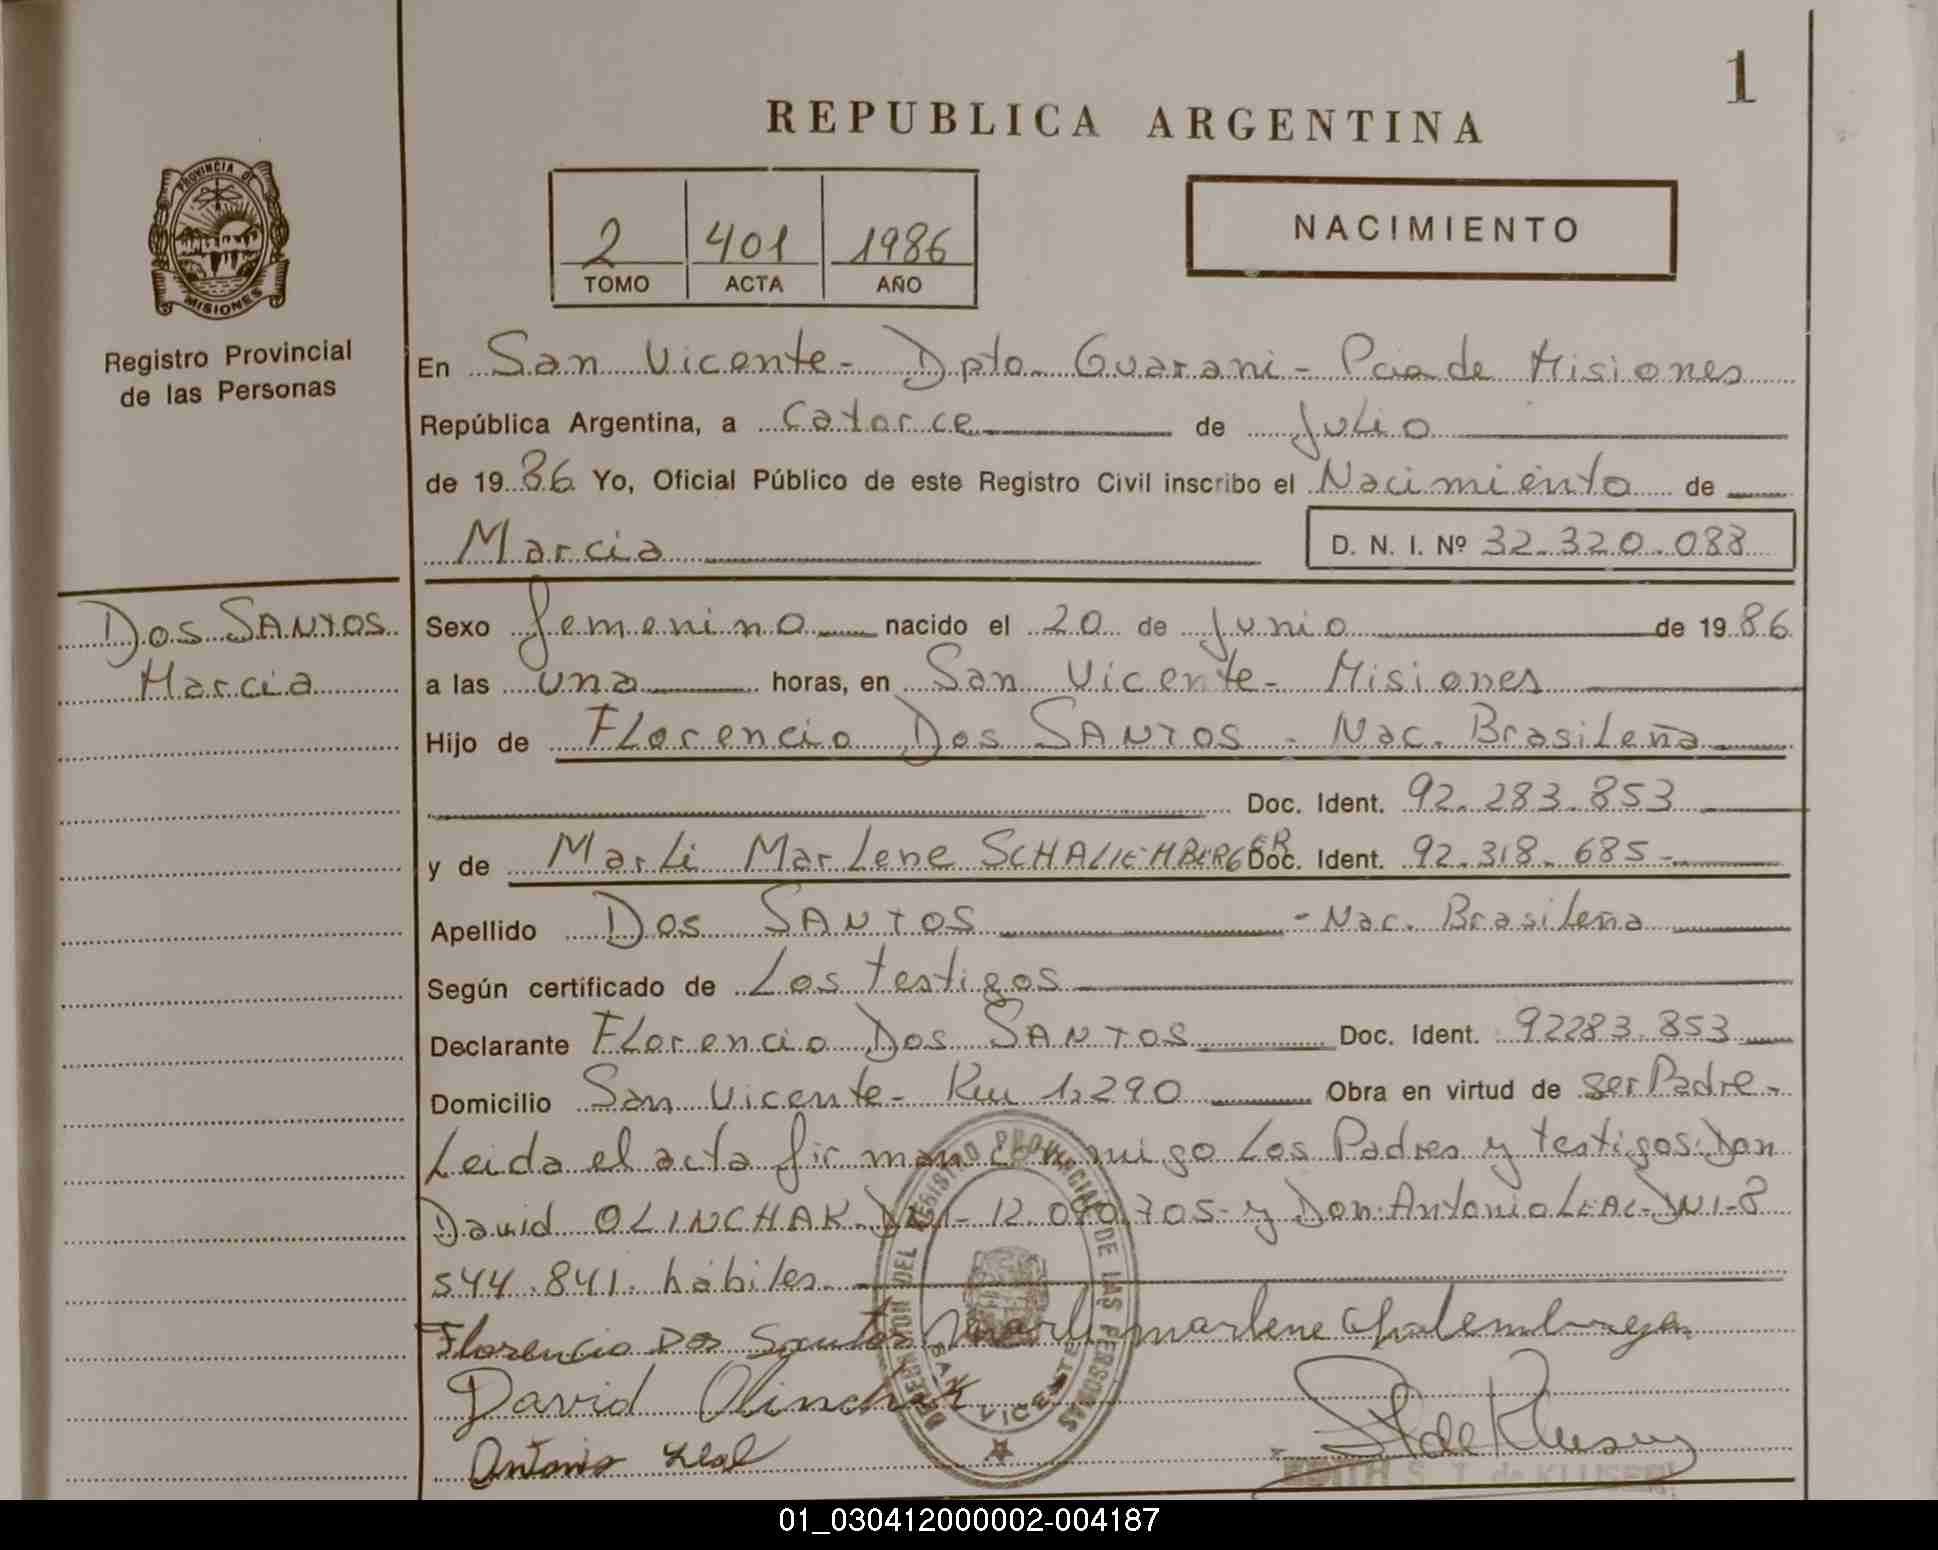 1
REPUBLICA ARGENTINA
PROVINCIA DE
MISIONES
Registro Provincial
de las Personas
2 401 1986
TOMO ACTA AÑO
NACIMIENTO
En San Vicente- Dpto Guarani- Pcia de Misiones
República Argentina, a Catorce de Julio
de 1986 Yo, Oficial Público de este Registro Civil inscribo el Nacimiento de
Marcia D. N. I. Nº 32.320.088
Dos SANTOS
Marcia
Sexo femenino nacido el 20 de Junio de 1986
a las una horas, en San Vicente- Misiones
Hijo de Florencio Dos SANTOS - Nac. Brasileña
Doc. Ident. 92.283.853
y de Marli Marlene SCHALIEMBERGER Doc. Ident. 92.318.685-
Apellido Dos SANTOS - Nac. Brasileña
Según certificado de Los testigos
Declarante Florencio Dos SANTOS Doc. Ident. 92283.853
Domicilio San Vicente- Km 1.290 Obra en virtud de ser Padre-
Leida el acta firman conmigo Los Padres y testigos: Don
David OLINCHAK- DNI- 12.070.705- y Don Antonio LEAL- DNI-8
544.841. hábiles
Florencio Dos Santos Marli marlene
David Olinchak
Antonio Leal
DIRECCION DEL REGISTRO PROVINCIAL DE LAS PERSONAS
SAN VICENTE
01_030412000002-004187